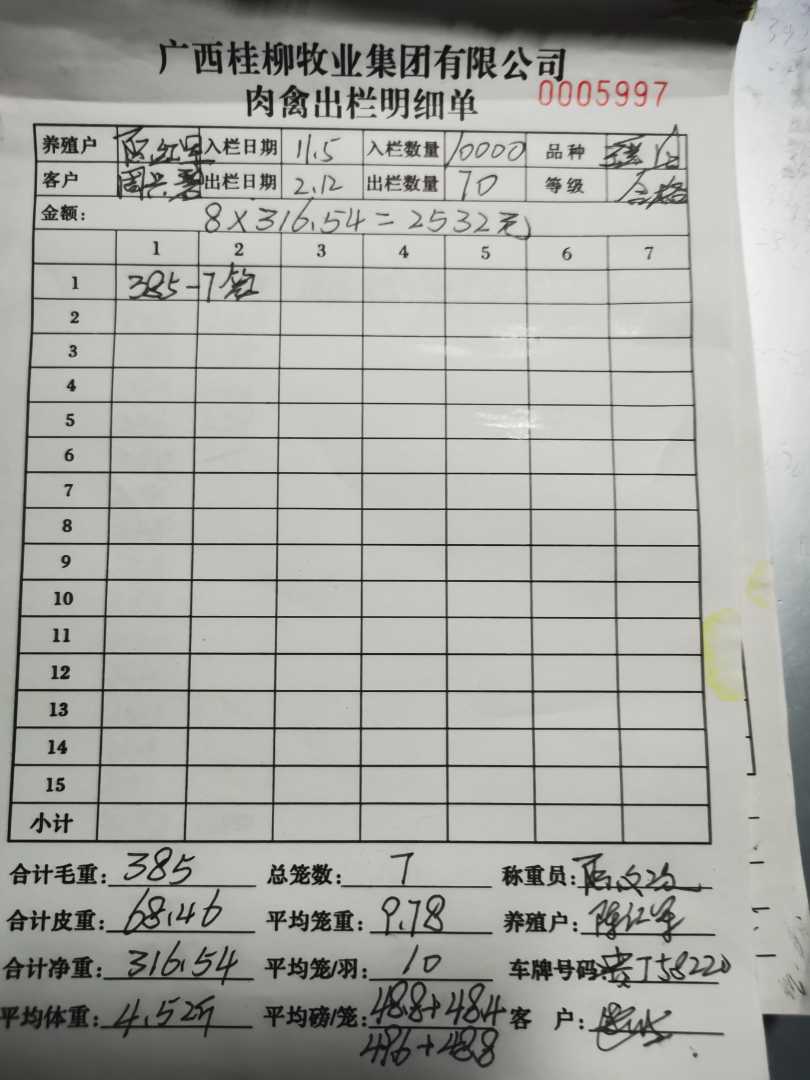 广西桂柳牧业集团有限公司
肉禽出栏明细单 0005997
养殖户 入栏日期 11.5 入栏数量 10000 品种
客户 出栏日期 2.12 出栏数量 70 等级 合格
金额: 8×316.54=2532元
1 2 3 4 5 6 7
1 385-7笼
2
3
4
5
6
7
8
9
10
11
12
13
14
15
小计
合计毛重: 385 总笼数: 7 称重员:
合计皮重: 68.46 平均笼重: 9.78 养殖户:
合计净重: 316.54 平均笼/羽: 10 车牌号码: 贵J58220
平均体重: 4.52斤 平均磅/笼: 48.8+48.4 客 户:
48.6+48.8